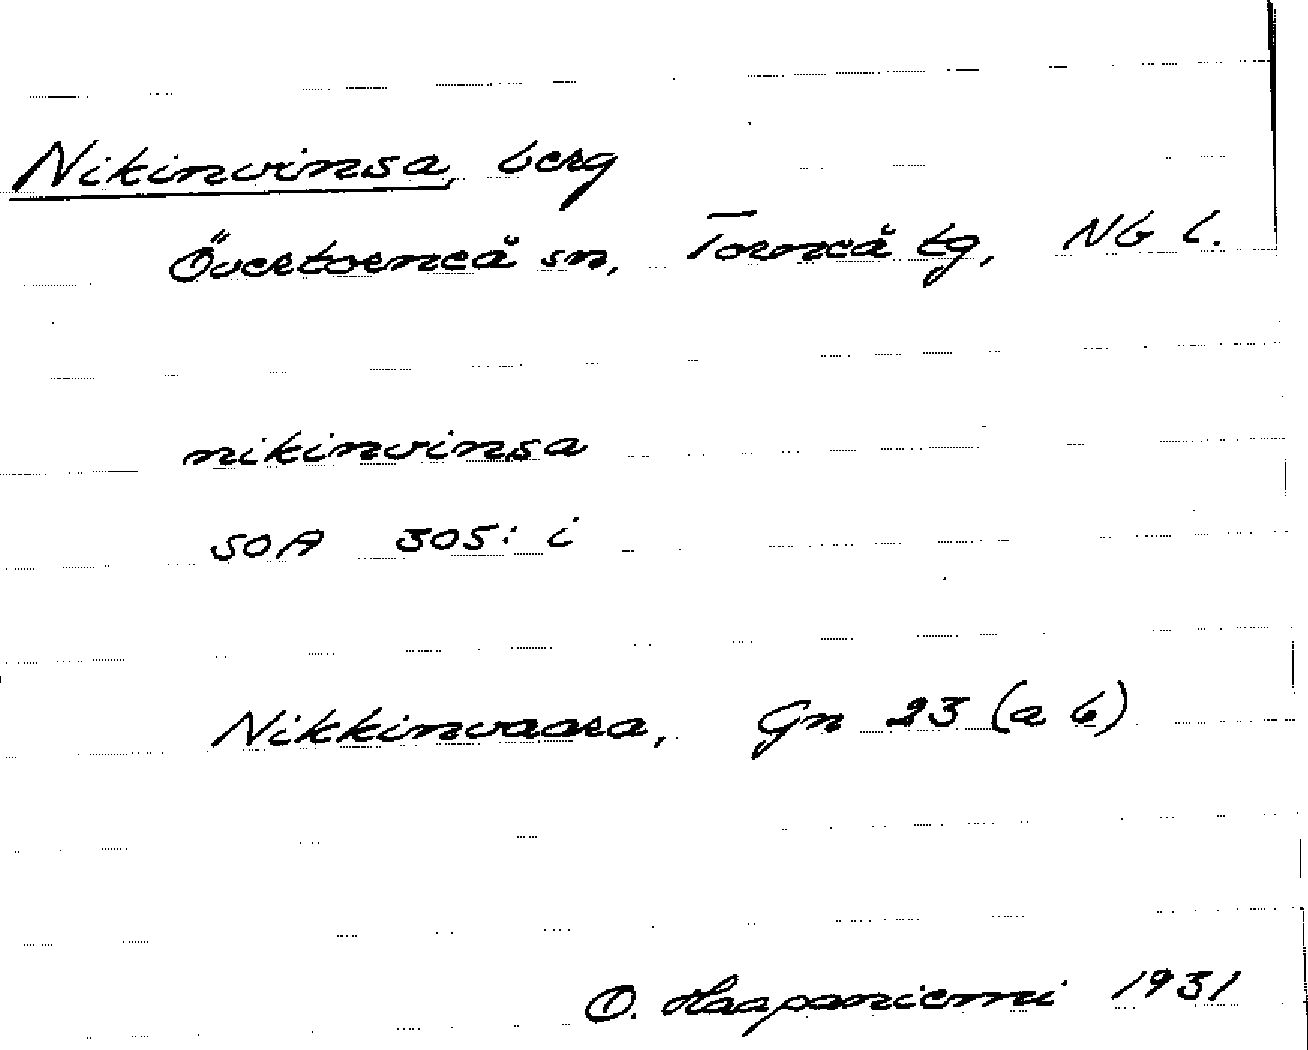 Nikinvinsa, berg
Övertorneå sn, Torneå tg, Nb l.
nikinvinsa
SOA 305: i
Nikkinvaara, Gn 23 (a b)
O. Haapaniemi 1931